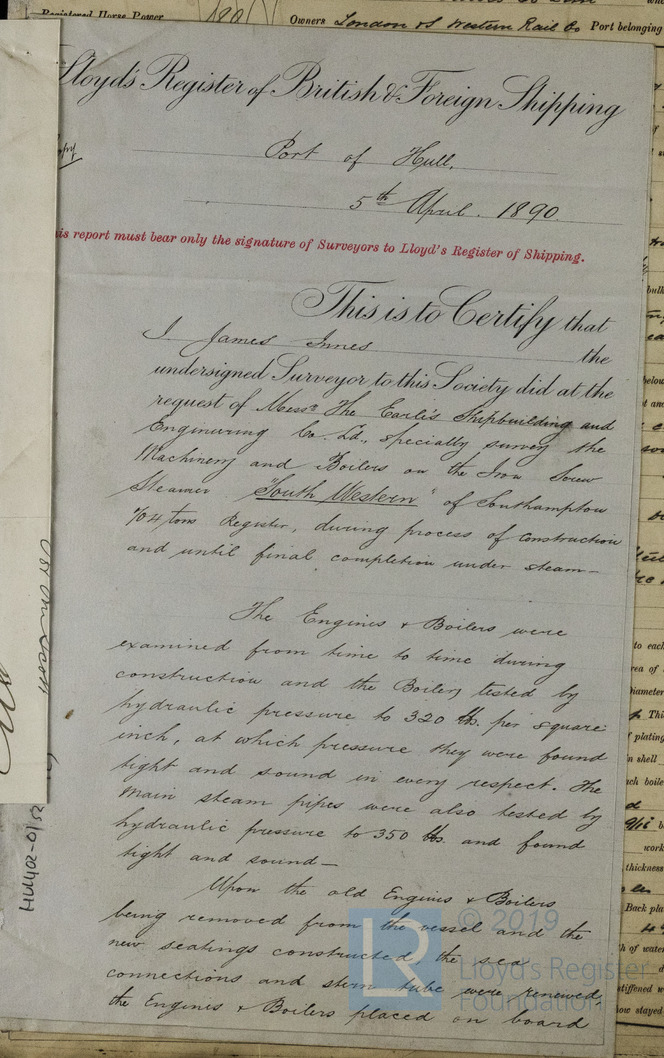 Registered Horse Power 180 Owners London & S Western Rail Co Port belonging
Lloyd's Register of British & Foreign Shipping
Copy
Port of Hull,
5th April. 1890.
his report must bear only the signature of Surveyors to Lloyd's Register of Shipping.
This is to Certify that
I James Innes the
undersigned Surveyor to this Society did at the
request of Messrs The Earle's Shipbuilding and
Engineering Co. Ld., specially survey the
Machinery and Boilers on the Iron Screw
Steamer "South Western" of Southampton
704 tons Register, during process of construction
and until final completion under steam—
The Engines & Boilers were
examined from time to time during
construction and the Boilers tested by
hydraulic pressure to 320 lbs. per square
inch, at which pressure they were found
tight and sound in every respect. The
Main steam pipes were also tested by
hydraulic pressure to 350 lbs. and found
tight and sound—
Upon the old Engines & Boilers
being removed from the vessel and the
new seatings constructed, the sea
connections and stern tube were renewed
the Engines & Boilers placed on board
HUL402-0152
LR © 2019
Lloyd's Register
Foundation